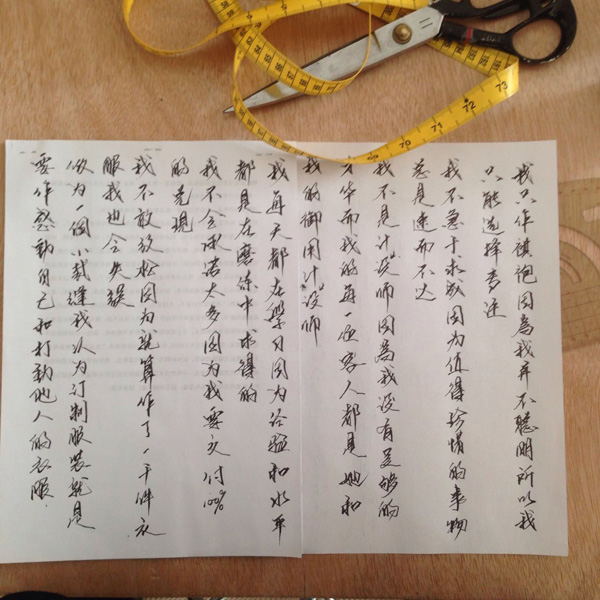 我只作旗袍因為我并不聰明所以我
只能选择专注
我不急于求成因为值得珍惜的事物
总是速而不达
我不是计设师因為我没有足够的
才华而我的每一位客人都是她和
我的御用计设师
我每天都在學习因为经验和水平
都是在磨练中求得的
我不会承诺太多因为我要交付100%
的兑现
我不敢放松因为就算作了一千件衣
服我也会失误
做为一個小裁缝我认为订制服装就是
要作感動自己和打動他人的衣服.
70
71
72
73